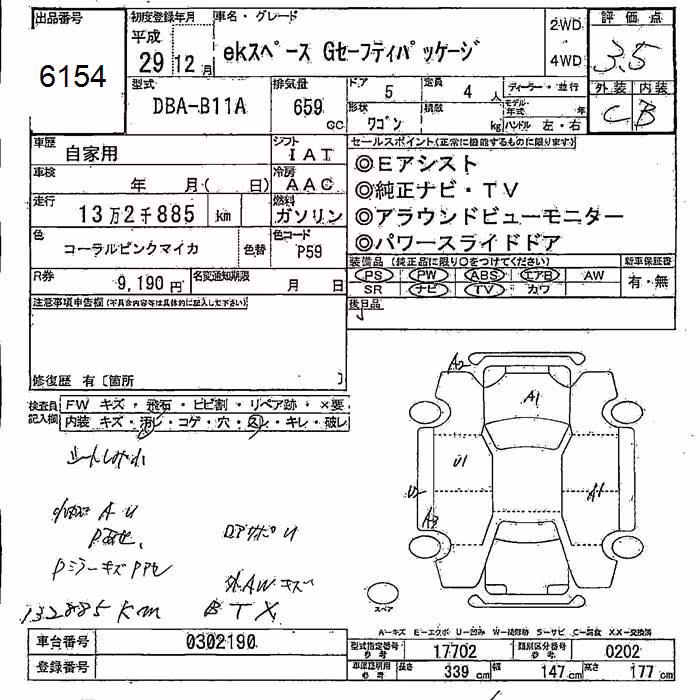 出品番号
6154
初度登録年月
平成
29 12月
車名・グレード
ekスペース Gセーフティパッケージ
2WD
4WD
評価点
3.5
外装 内装
C B
型式
DBA-B11A
排気量
659
CC
ドア
5
定員
4人
ディーラー・並行
形状
ワゴン
積載
kg
モデル年式 年
ハンドル 左・右
車歴
自家用
シフト
IAT
車検
年 月( 日)
冷房
AAC
走行
13万2千885 km
燃料
ガソリン
色
コーラルピンクマイカ
色替
色コード
P59
R券
9,190円
名変通知期限
月 日
セールスポイント(正常に機能するものに限ります)
◎Eアシスト
◎純正ナビ・TV
◎アラウンドビューモニター
◎パワースライドドア
装備品(純正品に限り○をつけてください)
新車保証書
PS PW ABS エアB AW
有・無
SR ナビ TV カワ
後日品
注意事項申告欄(不具合内容等は具体的に記入して下さい)
修復歴 有〔箇所 〕
検査員記入欄
FW キズ・飛石・ヒビ割・リペア跡・×要
内装 キズ・汚レ・コゲ・穴・スレ・キレ・破レ
シートしみ小
A U
Pミラーキズ
リアリアU
外AWキズ
132885Km
BTX
A2
A1
U1
A1
A2
スペア
A-キズ E-エクボ U-凹み W-補修跡 S-サビ C-腐食 XX-交換済
車台番号
0302190
登録番号
型式指定番号 参考
17702
類別区分番号 参考
0202
車庫証明用 参考
長さ 339cm 幅 147cm 高さ 177cm